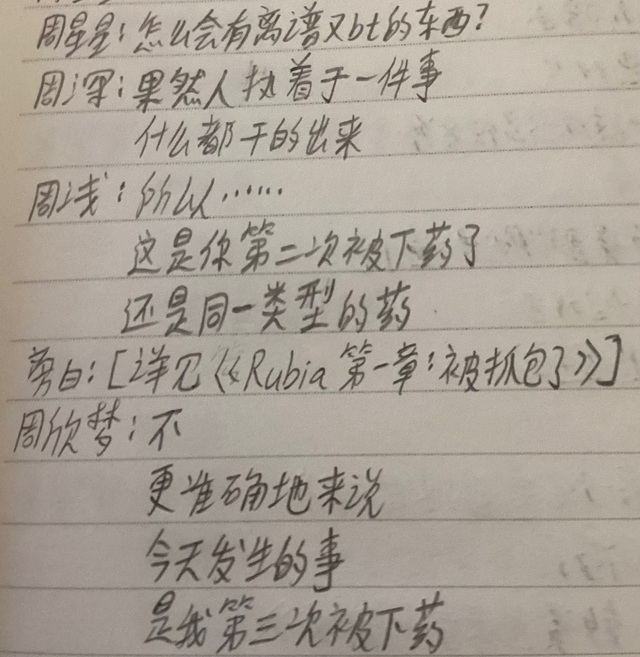 周星星：怎么会有离谱又bt的东西？
周深：果然人执着于一件事
什么都干的出来
周浅：所以……
这是你第二次被下药了
还是同一类型的药
旁白：[详见《Rubia第一章：被抓包了》]
周欣梦：不
更准确地来说
今天发生的事
是我第三次被下药